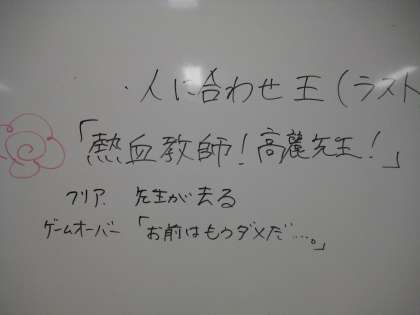 ・人に合わせ王(ラスト
「熱血教師!高麗先生!」
クリア 先生が去る
ゲームオーバー「お前はもうダメだ…。」